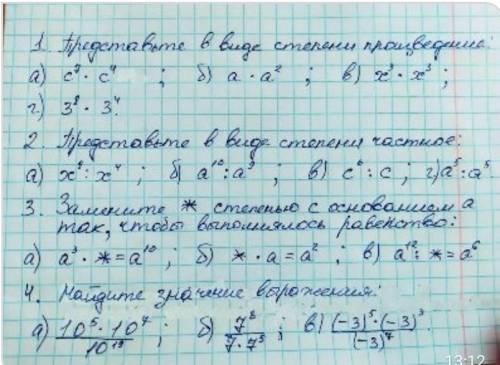 1. Представьте в виде степени произведение:
а) c⁷ · c⁴ ; б) a · a² ; в) x³ · x³ ;
г) 3⁸ · 3⁴.
2. Представьте в виде степени частное:
а) x⁸ : x⁴ ; б) a¹⁰ : a⁹ ; в) c⁶ : c ; г) a⁵ : a⁵.
3. Замените * степенью с основанием a
так, чтобы выполнялось равенство:
а) a³ · * = a¹⁰ ; б) * · a = a² ; в) a¹² : * = a⁶
4. Найдите значение выражения:
а) (10⁵ · 10⁷)/10¹³ ; б) 7⁸/(7 · 7⁵) ; в) ((-3)⁵ · (-3)³)/(-3)⁷.
13:12